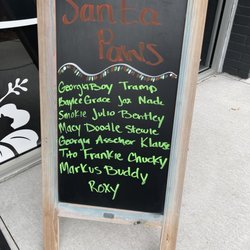 Santa
Paws
Georgia Boy Tramp
Baylee Grace Jax Nade
Smokie Julio Bentley
Macy Doodle Stewie
Georgia Asscher Klause
Tito Frankie Chucky
Markus Buddy
Roxy